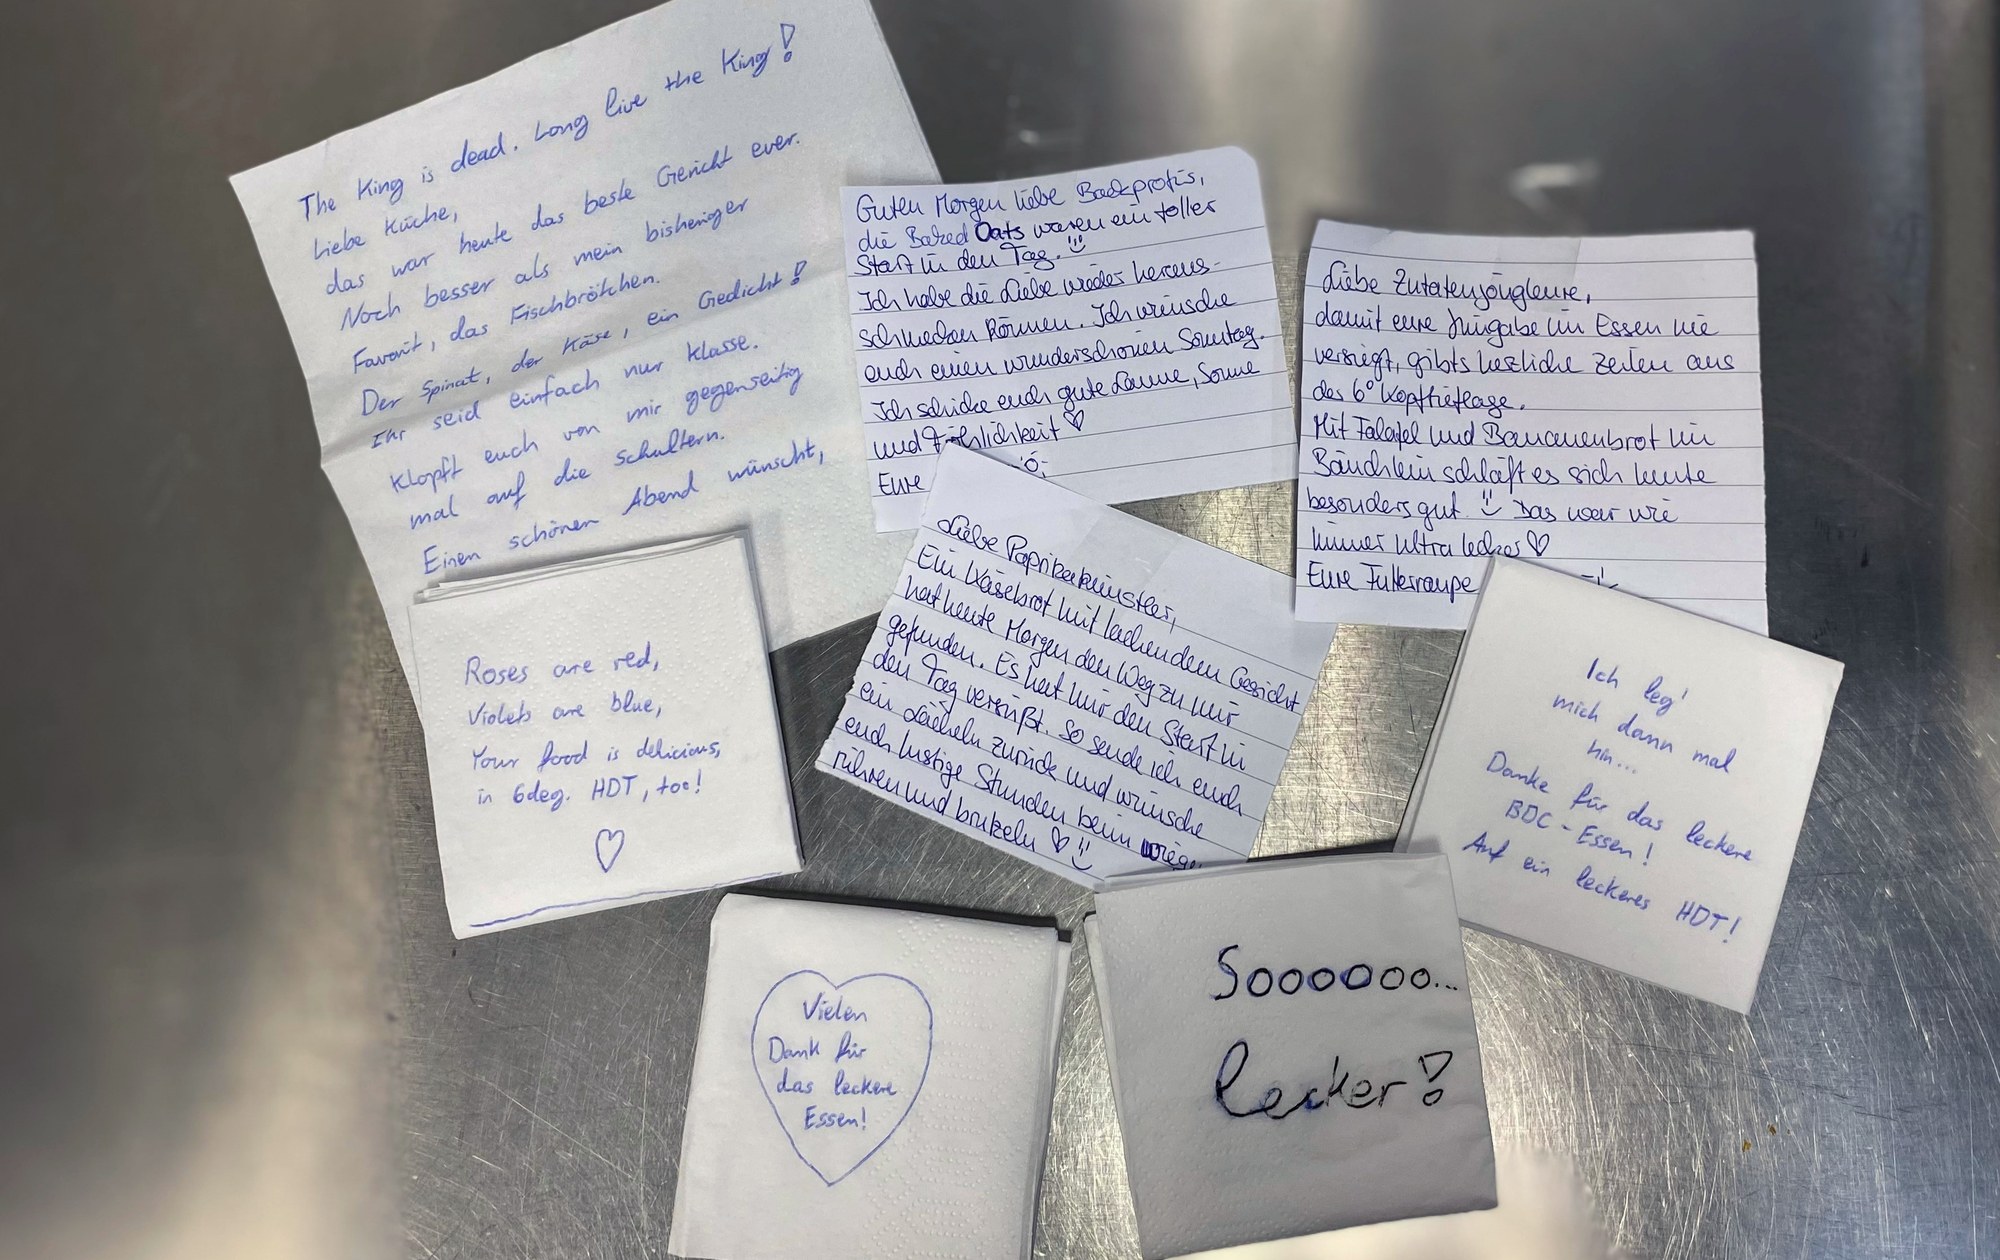 The King is dead. Long live the King!
Liebe Küche,
das war heute das beste Gericht ever.
Noch besser als mein bisheriger
Favorit, das Fischbrötchen.
Der Spinat, der Käse, ein Gedicht!
Ihr seid einfach nur klasse.
Klopft euch von mir gegenseitig
mal auf die Schultern.
Einen schönen Abend wünscht,
Guten Morgen liebe Backprofis,
die Baked Oats waren ein toller
Start in den Tag.
Ich habe die Liebe wieder heraus-
schmecken können. Ich wünsche
euch einen wunderschönen Sonntag.
Ich schicke euch gute Laune, Sonne
und Fröhlichkeit ♡
Eure
Liebe Zutatenjongleure,
damit eure Hingabe im Essen nie
versiegt, gibts herzliche Zeilen aus
der 6° Kopftieflage.
Mit Falafel und Bananenbrot im
Bäuchlein schläft es sich heute
besonders gut. Das war wie
immer ultra lecker ♡
Eure Futterraupe
Liebe Paprikakünstler,
Ein Käsebrot mit lachendem Gesicht
hat heute Morgen den Weg zu mir
gefunden. Es hat mir den Start in
den Tag versüßt. So sende ich euch
ein Lächeln zurück und wünsche
euch lustige Stunden beim
rühren und brutzeln ♡
Roses are red,
Violets are blue,
Your food is delicious,
in 6deg. HDT, too!
♡
Ich leg'
mich dann mal
hin...
Danke für das leckere
BDC-Essen!
Auf ein leckeres HDT!
Vielen
Dank für
das leckere
Essen!
Soooooo...
lecker!